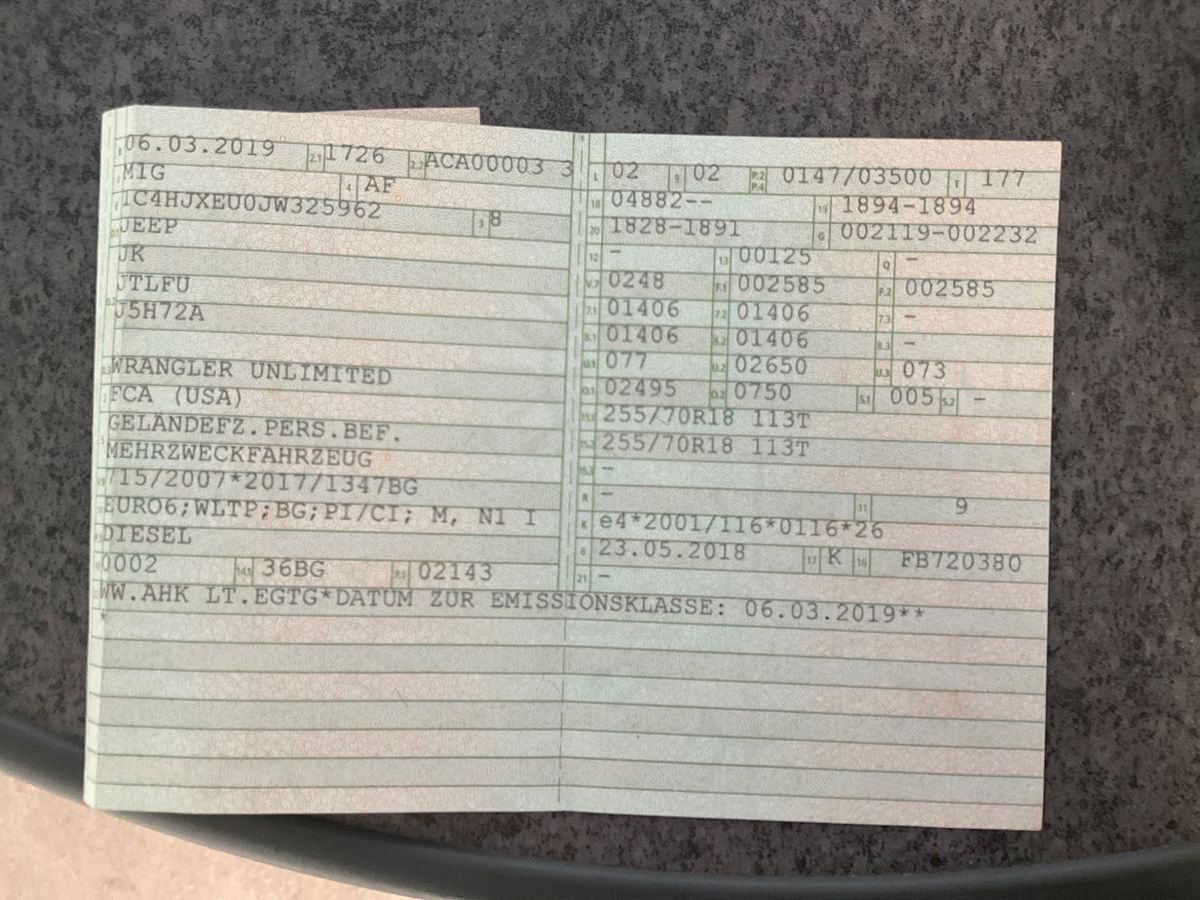 B 06.03.2019 2.1 1726 2.2 ACA00003 3
J M1G 4 AF
E 1C4HJXEU0JW325962 3 8
D.1 JEEP
JK
D.2 JTLFU
J5H72A
D.3 WRANGLER UNLIMITED
2 FCA (USA)
5 GELÄNDEFZ.PERS.BEF.
MEHRZWECKFAHRZEUG
V.9 715/2007*2017/1347BG
14 EURO6;WLTP;BG;PI/CI; M, N1 I
P.3 DIESEL
10 0002 14.1 36BG P.1 02143
22 WW.AHK LT.EGTG*DATUM ZUR EMISSIONSKLASSE: 06.03.2019**
*
L 02 9 02 P.2 P.4 0147/03500 T 177
18 04882-- 19 1894-1894
20 1828-1891 G 002119-002232
12 - 13 00125 Q -
V.7 0248 F.1 002585 F.2 002585
7.1 01406 7.2 01406 7.3 -
8.1 01406 8.2 01406 8.3 -
U.1 077 U.2 02650 U.3 073
O.1 02495 O.2 0750 S.1 005 S.2 -
15.1 255/70R18 113T
15.2 255/70R18 113T
15.3 -
R - 11 9
K e4*2001/116*0116*26
6 23.05.2018 17 K 16 FB720380
21 -